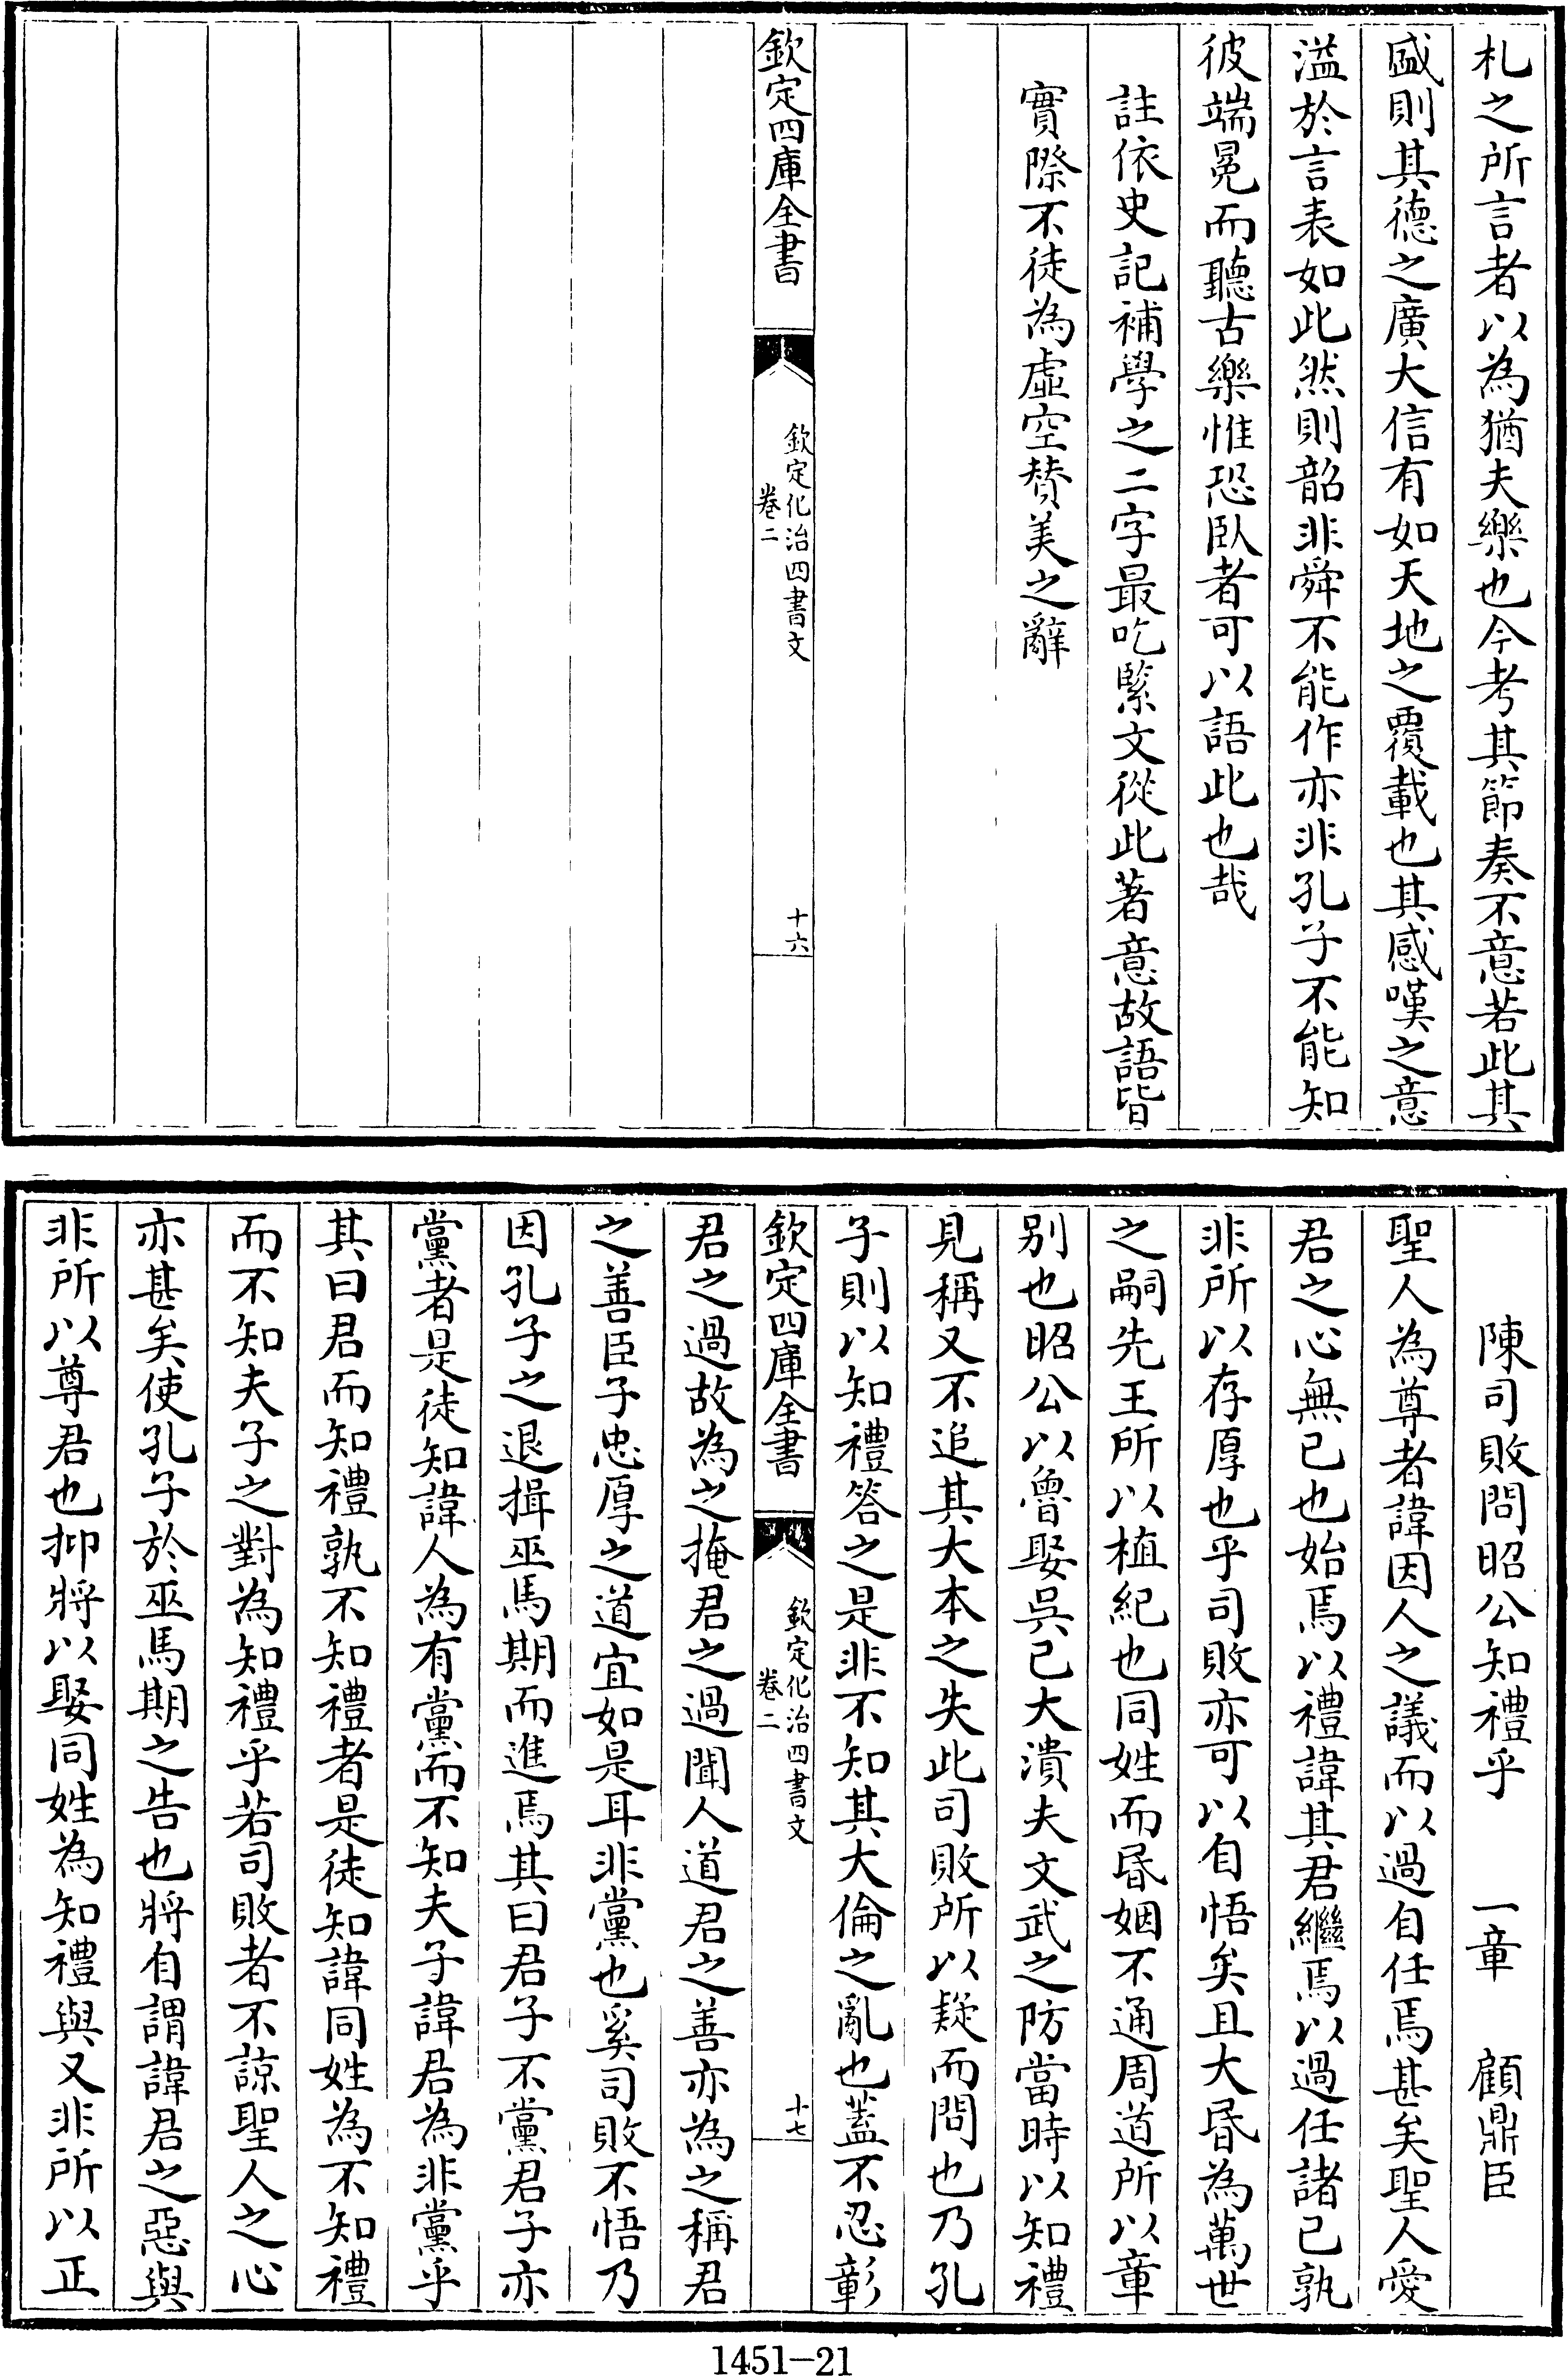 札之所言者以為猶夫樂也今考其節奏不意若此其
盛則其德之廣大信有如天地之覆載也其感嘆之意
溢於言表如此然則韶非舜不能作亦非孔子不能知
彼端冕而聽古樂惟恐臥者可以語此也哉
註依史記補學之二字最吃緊文從此著意故語皆
實際不徒為虛空贊美之辭
欽定四庫全書
欽定化治四書文
卷二
十六
陳司敗問昭公知禮乎 一章 顧鼎臣
聖人為尊者諱因人之議而以過自任焉甚矣聖人愛
君之心無已也始焉以禮諱其君繼焉以過任諸己孰
非所以存厚也乎司敗亦可以自悟矣且大昏為萬世
之嗣先王所以植紀也同姓而昏姻不通周道所以章
別也昭公以魯娶吳已大潰夫文武之防當時以知禮
見稱又不追其大本之失此司敗所以疑而問也乃孔
子則以知禮答之是非不知其大倫之亂也蓋不忍彰
欽定四庫全書
欽定化治四書文
卷二
十七
君之過故為之掩君之過聞人道君之善亦為之稱君
之善臣子忠厚之道宜如是耳非黨也奚司敗不悟乃
因孔子之退揖巫馬期而進焉其曰君子不黨君子亦
黨者是徒知諱人為有黨而不知夫子諱君為非黨乎
其曰君而知禮孰不知禮者是徒知諱同姓為不知禮
而不知夫子之對為知禮乎若司敗者不諒聖人之心
亦甚矣使孔子於巫馬期之告也將自謂諱君之惡與
非所以尊君也抑將以娶同姓為知禮與又非所以正
1451-21